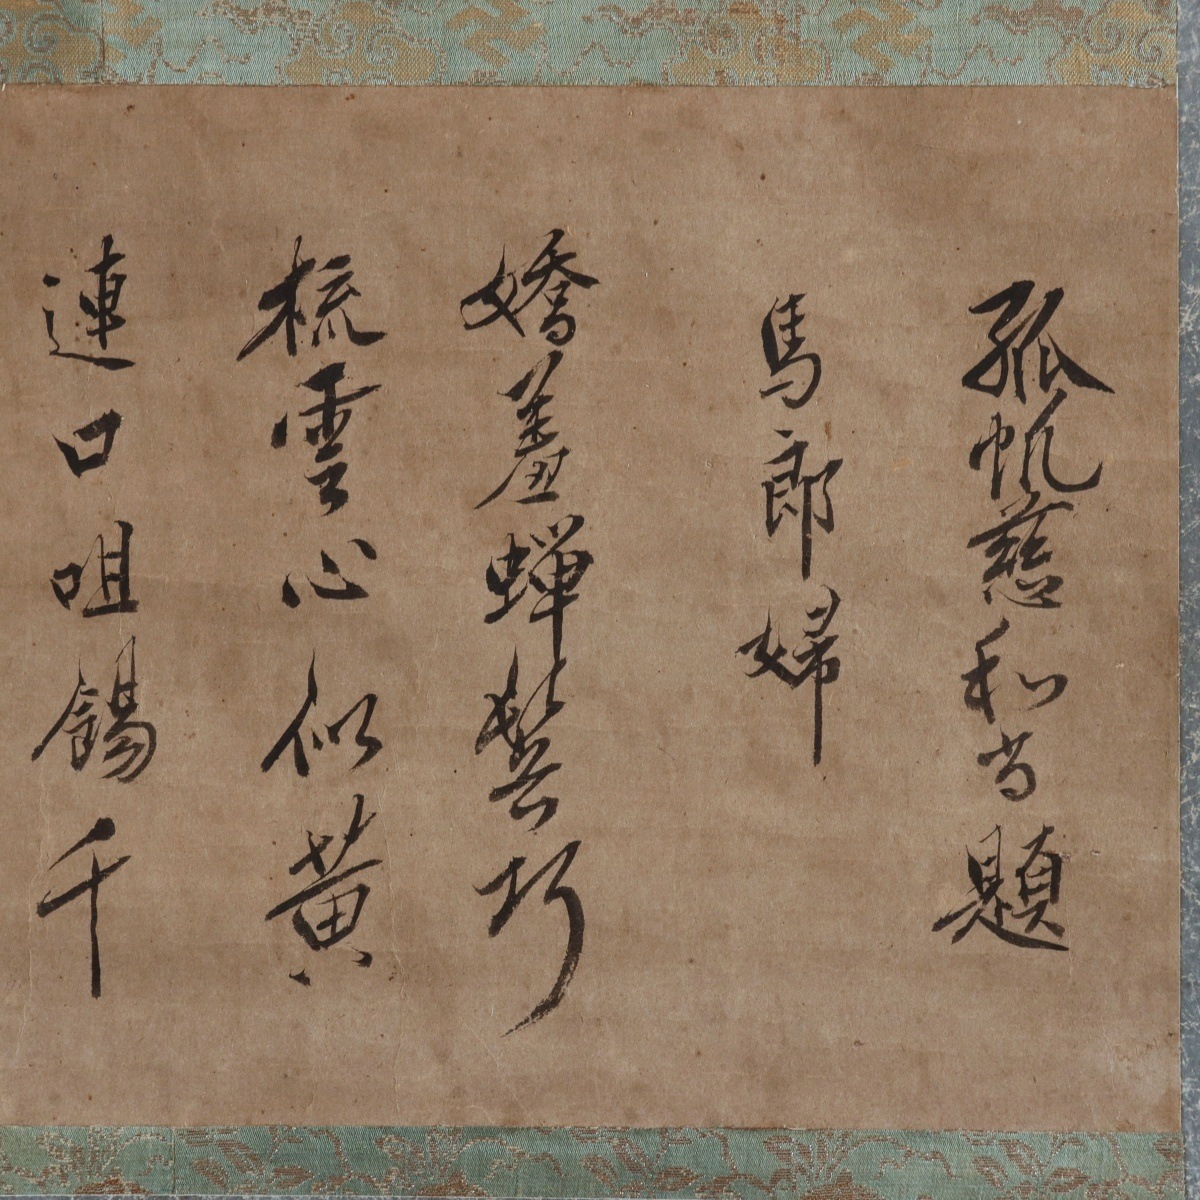 孤帆慈和尚題
馬郎婦
嬌羞蟬鬢巧
梳雲心似黄
連口咀錫千